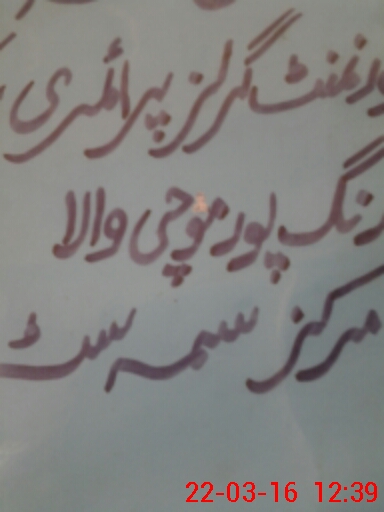 ورنمنٹ گرلز پرائمری
رنگ پور موچی والا
مرکز سمہ سٹہ
22-03-16 12:39